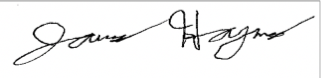 James Haynes